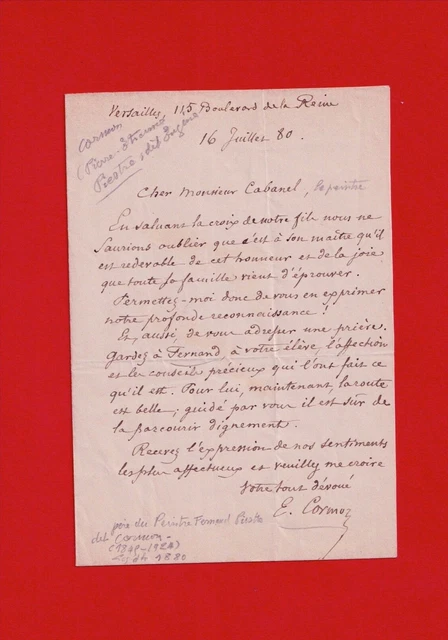 Versailles, 115 Boulevard de la Reine
16 Juillet 80.
Cormon
(Pierre-Etienne
Piestre, dit Eugène
Cher Monsieur Cabanel, le peintre
En saluant la croix de notre fils nous ne
saurions oublier que c'est à son maître qu'il
est redevable de cet honneur et de la joie
que toute sa famille vient d'éprouver.
Permettez-moi donc de vous en exprimer
notre profonde reconnaissance!
Et aussi de vous adresser une prière.
Gardez à Fernand, à votre élève, l'affection
et les conseils précieux qui l'ont fait ce
qu'il est. Pour lui, maintenant la route
est belle; guidé par vous il est sûr de
la parcourir dignement.
Recevez l'expression de nos sentiments
les plus affectueux et veuillez me croire
Votre tout dévoué
E. Cormon
père du Peintre Fernand Piestre
dit Cormon
1880